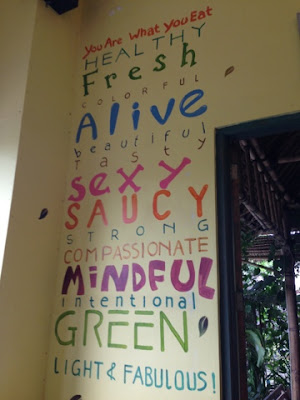 You Are What You Eat
HEALTHY
Fresh
COLORFUL
Alive
beautiful
Tasty
Sexy
SAUCY
STRONG
COMPASSIONATE
MiNDFUL
intentional
GREEN
LIGHT & FABULOUS!